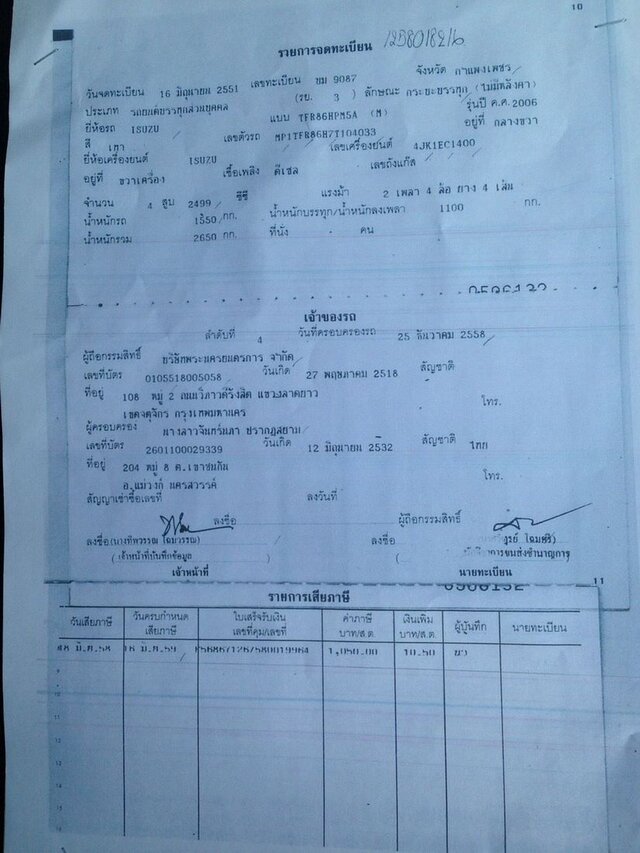 10
รายการจดทะเบียน 1258018216
วันจดทะเบียน 16 มิถุนายน 2551 เลขทะเบียน ขม 9087 จังหวัด กำแพงเพชร
ประเภท รถยนต์บรรทุกส่วนบุคคล (รย. 3) ลักษณะ กระบะบรรทุก (ไม่มีหลังคา)
ยี่ห้อรถ ISUZU แบบ TFR86HPM5A (M) รุ่นปี ค.ศ. 2006
สี เทา เลขตัวรถ MP1TFR86H7T104033 อยู่ที่ กลางขวา
ยี่ห้อเครื่องยนต์ ISUZU เลขเครื่องยนต์ 4JK1EC1400
อยู่ที่ ขวาเครื่อง เชื้อเพลิง ดีเซล เลขถังแก๊ส
จำนวน 4 สูบ 2499 ซีซี แรงม้า 2 เพลา 4 ล้อ ยาง 4 เส้น
น้ำหนักรถ 1550 กก. น้ำหนักบรรทุก/น้ำหนักลงเพลา 1100 กก.
น้ำหนักรวม 2650 กก. ที่นั่ง คน
เจ้าของรถ
ลำดับที่ 4 วันที่ครอบครองรถ 25 ธันวาคม 2558
ผู้ถือกรรมสิทธิ์ บริษัทพระนครยนตรการ จำกัด
เลขที่บัตร 0105518005058 วันเกิด 27 พฤษภาคม 2518 สัญชาติ
ที่อยู่ 108 หมู่ 2 ถนนวิภาวดีรังสิต แขวงลาดยาว โทร.
เขตจตุจักร กรุงเทพมหานคร
ผู้ครอบครอง นางสาวจันทร์นภา ปรากฏสยาม
เลขที่บัตร 2601100029339 วันเกิด 12 มิถุนายน 2532 สัญชาติ ไทย
ที่อยู่ 204 หมู่ 8 ต.เขาชนกัน โทร.
อ.แม่วงก์ นครสวรรค์
สัญญาเช่าซื้อเลขที่ ลงวันที่
ลงชื่อ ผู้ถือกรรมสิทธิ์
ลงชื่อ (นางทิพวรรณ โฉมวรรณ) ลงชื่อ
(เจ้าหน้าที่บันทึกข้อมูล) การขนส่งชำนาญการ
เจ้าหน้าที่ นายทะเบียน
11
รายการเสียภาษี
วันเสียภาษี วันครบกำหนดเสียภาษี ใบเสร็จรับเงิน เลขที่คุม/เลขที่ ค่าภาษี บาท/ส.ต. เงินเพิ่ม บาท/ส.ต. ผู้บันทึก นายทะเบียน
18 มิ.ย.58 16 มิ.ย.59 1,050.00 10.50
9
10
11
12
13
14
15
16